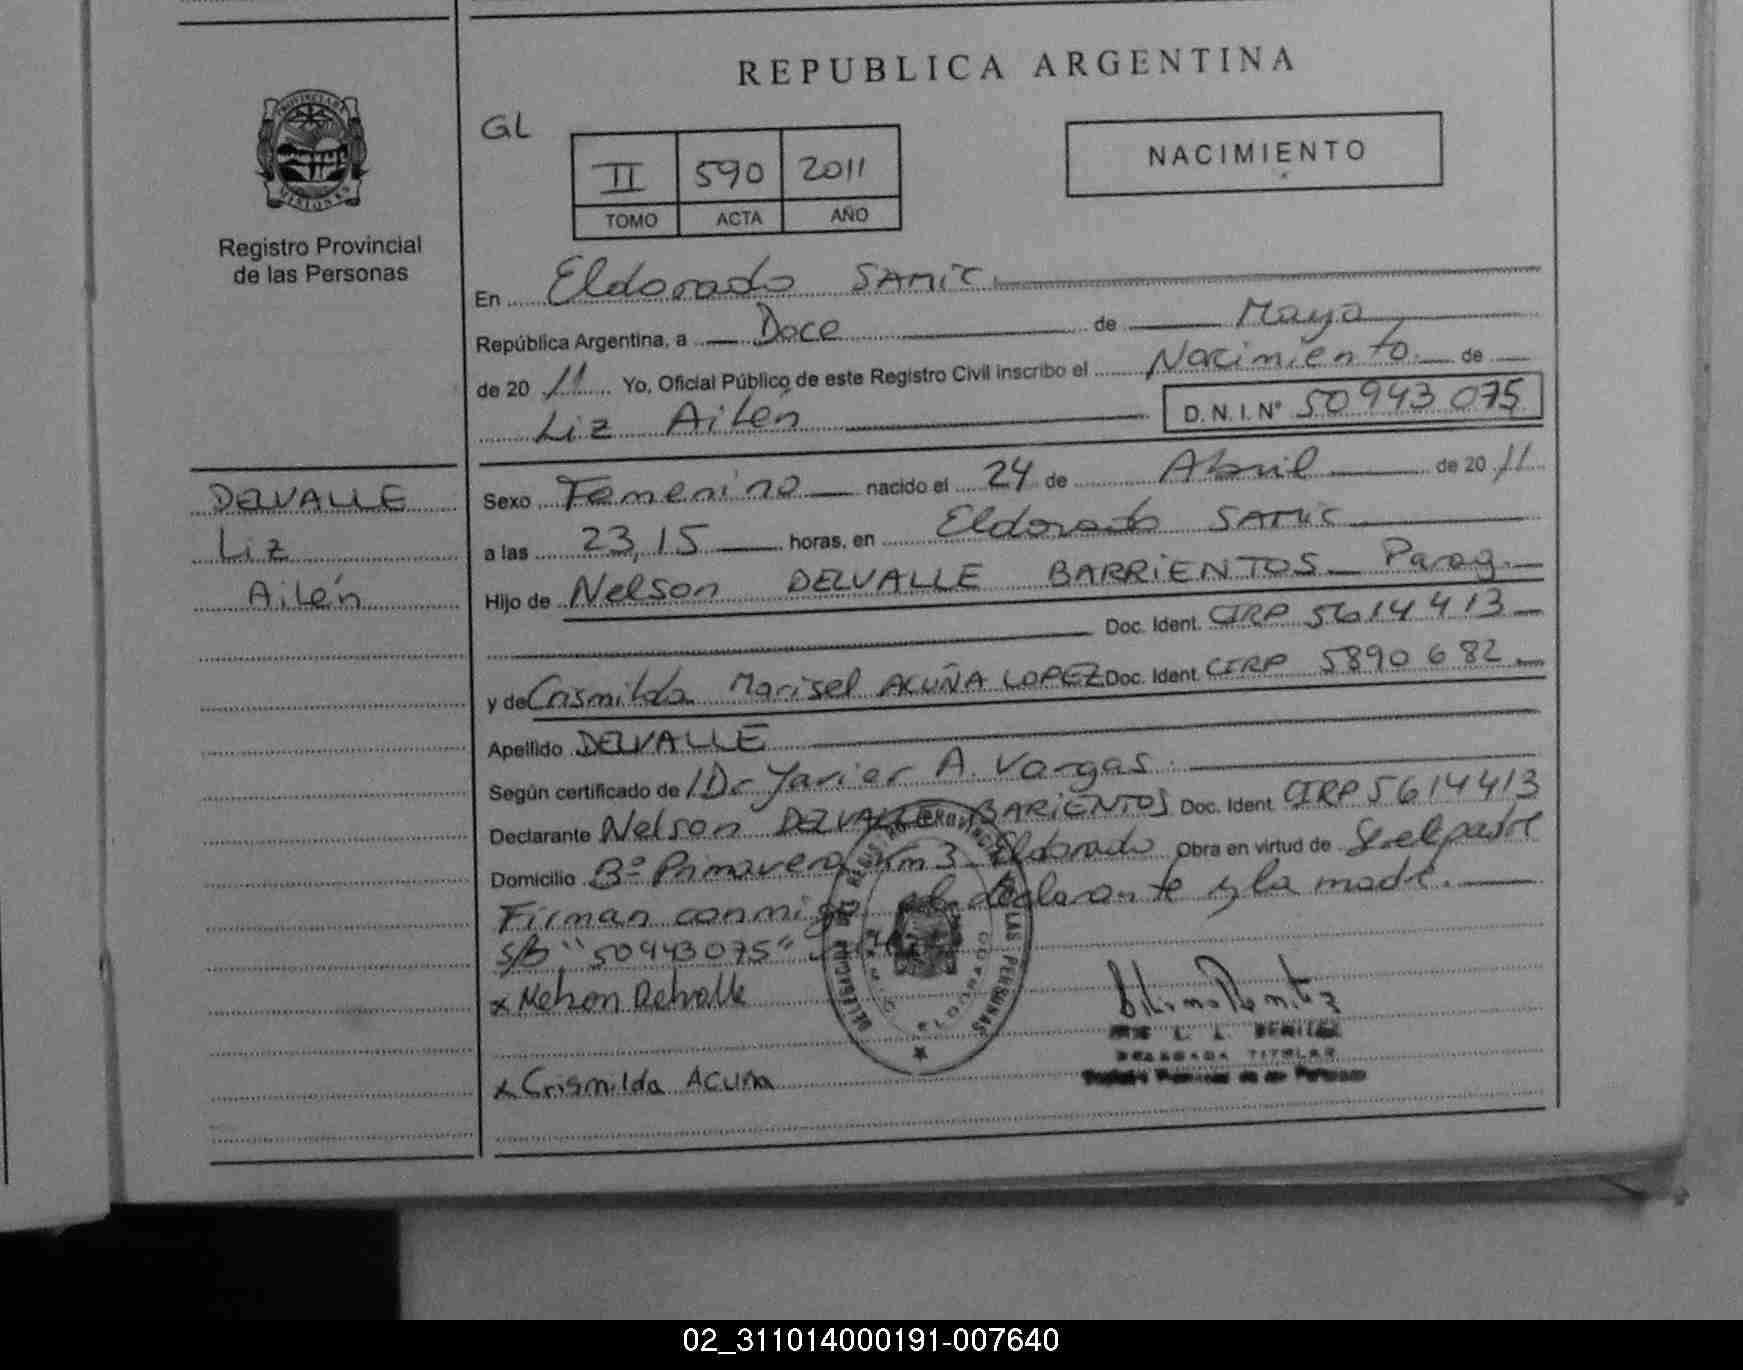 REPUBLICA ARGENTINA
PROVINCIA DE
MISIONES
Registro Provincial
de las Personas
GL
II 590 2011
TOMO ACTA AÑO
NACIMIENTO
En Eldorado SAMIC
República Argentina, a Doce de Mayo
de 20 11 Yo, Oficial Público de este Registro Civil inscribo el Nacimiento de
Liz Ailén D.N.I. N° 50943075
DELVALLE
Liz
Ailén
Sexo Femenino nacido el 24 de Abril de 20 11
a las 23,15 horas, en Eldorado SAMIC
Hijo de Nelson DELVALLE BARRIENTOS Parag.
Doc. Ident. CIRP 5614413
y de Crismilda Marisel ACUÑA LOPEZ Doc. Ident. CIRP 5890682
Apellido DELVALLE
Según certificado de Dr Javier A. Vargas
Declarante Nelson DELVALLE BARIENTOS Doc. Ident. CIRP 5614413
Domicilio B° Primavera km 3 Eldorado Obra en virtud de Ser el padre
Firman conmigo el declarante y la madre.
S/B "50943075"
x Nelson Delvalle
x Crismilda ACUÑA
DELEGACION REGISTRO PROVINCIAL DE LAS PERSONAS
TITULAR
02_311014000191-007640